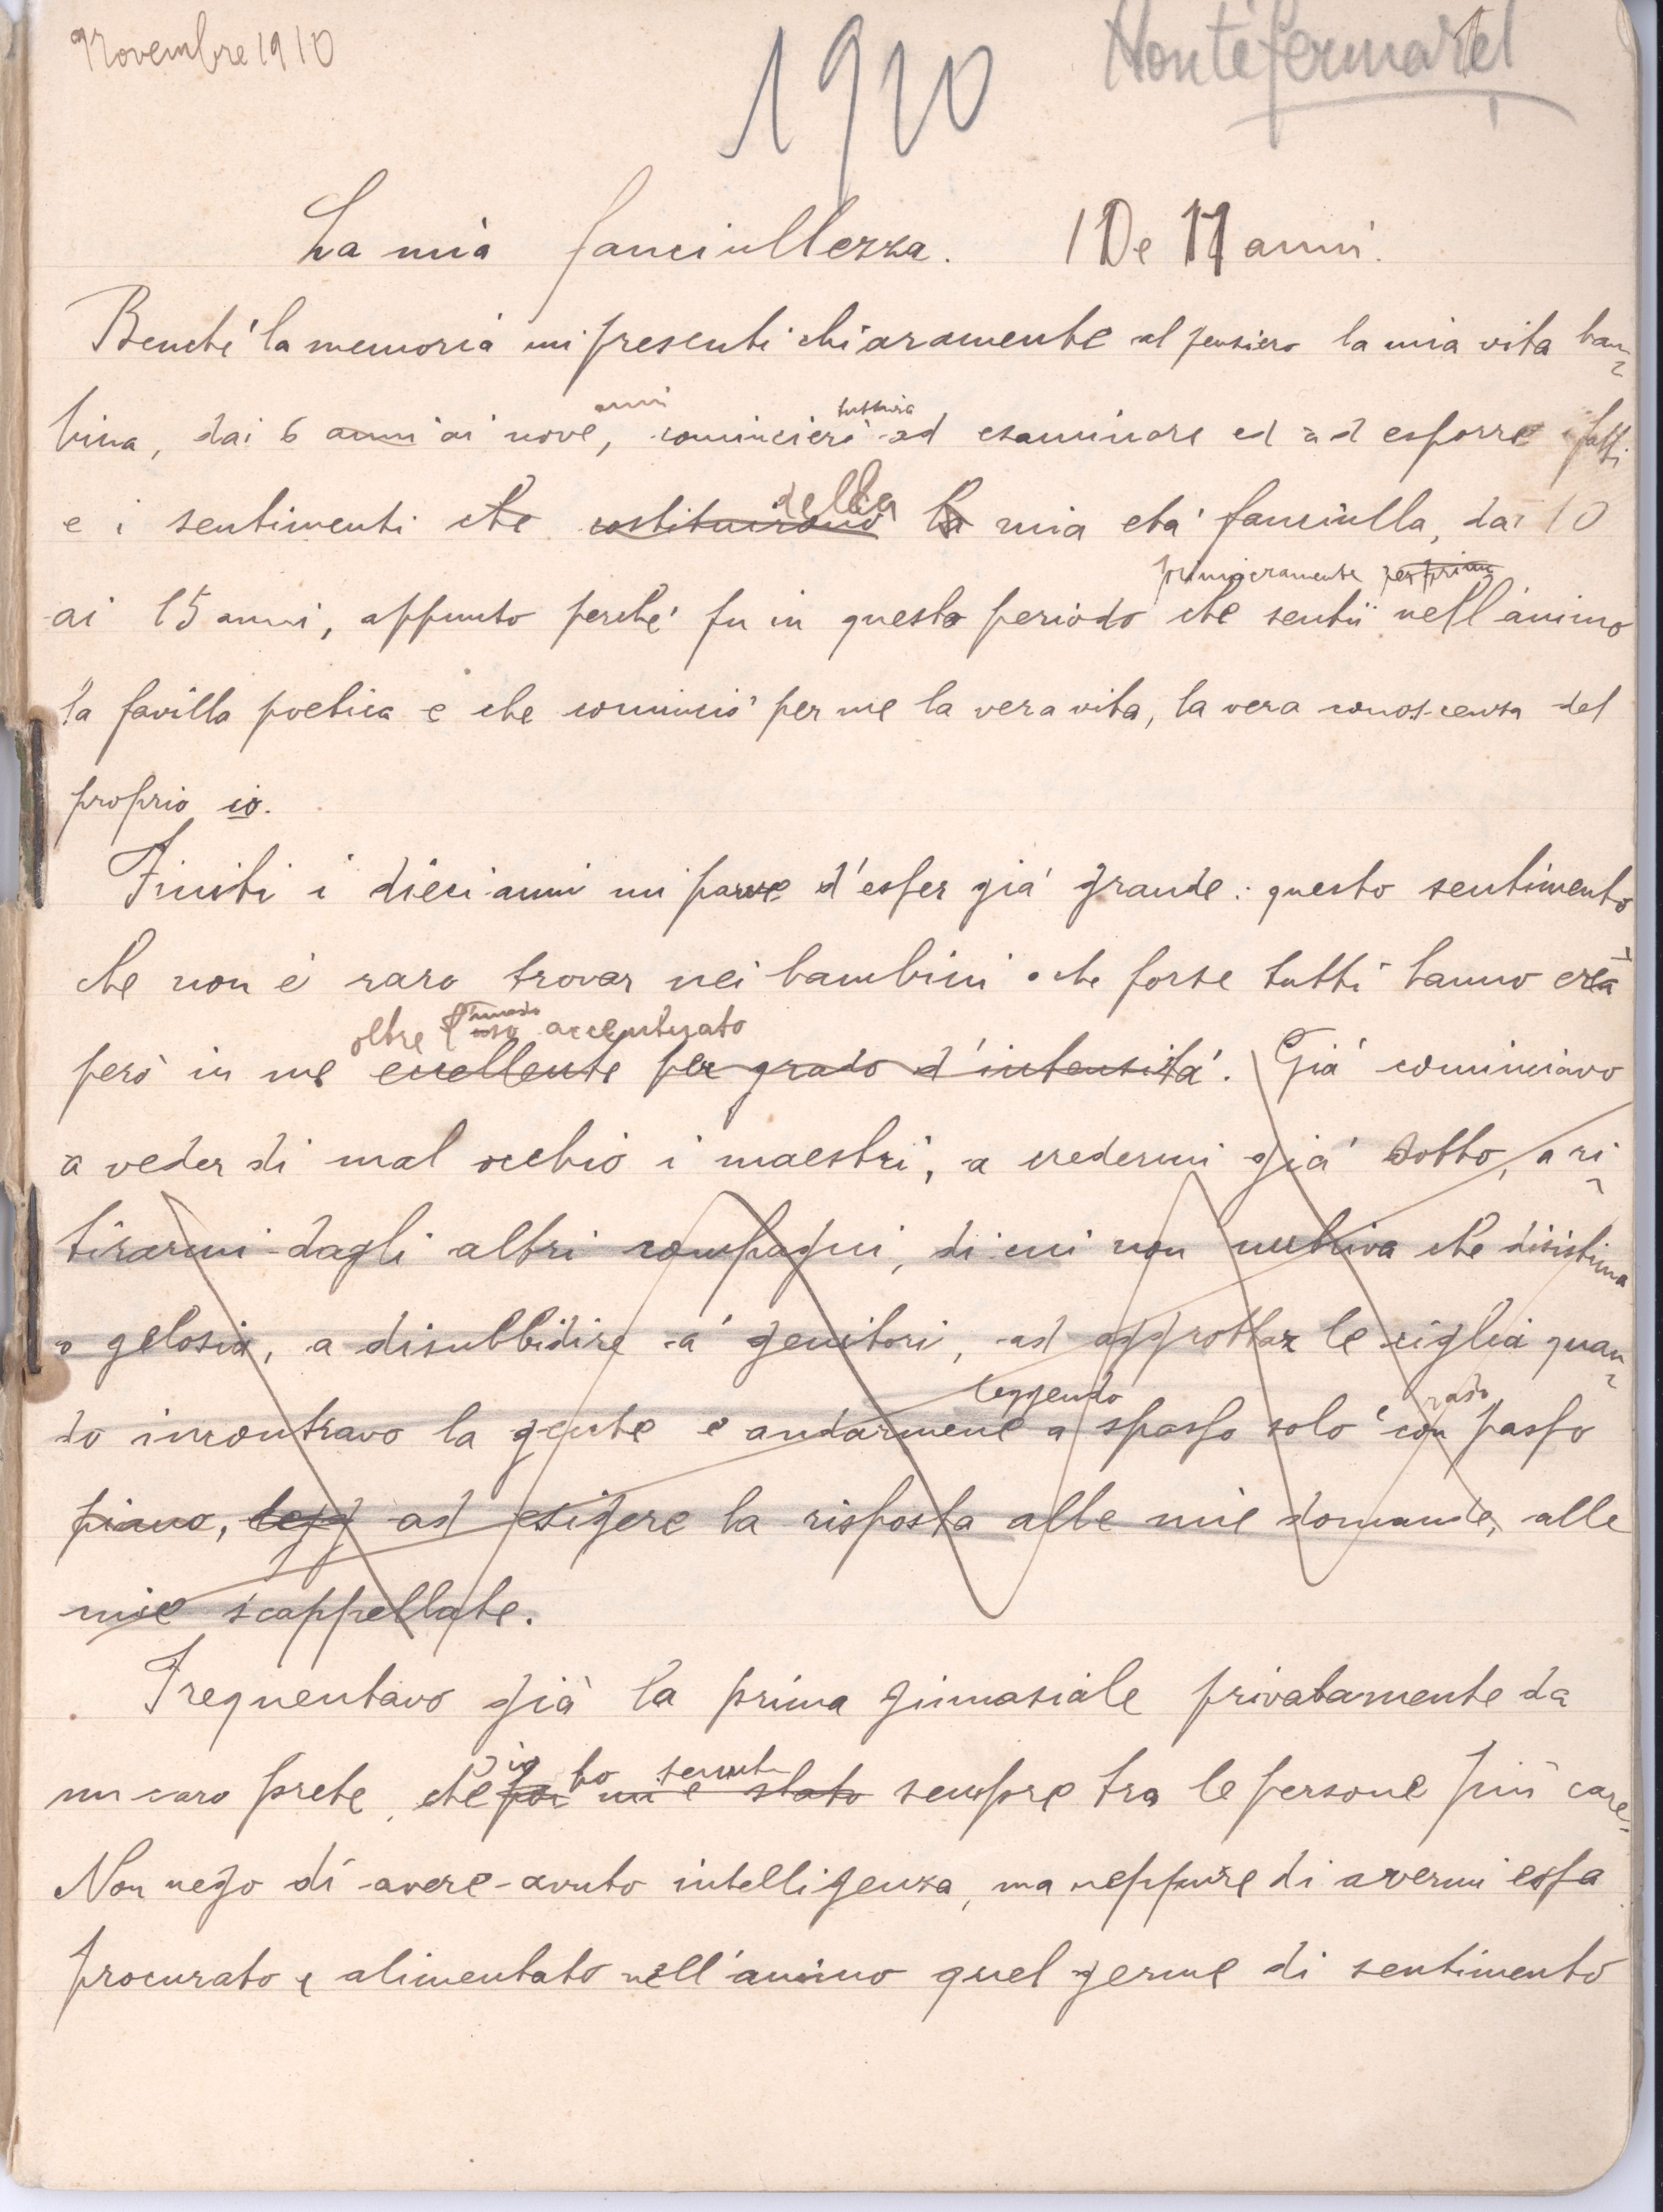 Novembre 1910
1910
La mia fanciullezza. 10 e 11 anni.
Benché la memoria mi presenti chiaramente al pensiero la mia vita bam=
anni tuttavia
bina, dai 6 anni ai nove, comincierò ad esaminare ed ad esporre i fatti
della
e i sentimenti che costituirono la mia età fanciulla, dai 10
primieramente per prima
ai 15 anni, appunto perché fu in questo periodo che sentii nell'animo
la favilla poetica e che cominciò per me la vera vita, la vera conoscenza del
proprio io.
Finiti i dieci anni mi parve d'esser già grande: questo sentimento
che non è raro trovar nei bambini e che forse tutti hanno era
oltre modo accentuato
però in me eccellente per grado d'intensità. Già cominciavo
a veder di mal occhio i maestri, a credermi già dotto, a ri=
tirarmi dagli altri compagni, di cui non nutriva che disistima
o gelosia, a disubbidire a' genitori, ad aggrottar le ciglia quan=
leggendo rado
do incontravo la gente e andarmene a spasso solo con passo
piano, legg ad esigere la risposta alle mie domande, alle
mie scappellate.
Frequentavo già la prima ginnasiale privatamente da
io ho tenuto
un caro prete, che poi mi è stato sempre tra le persone più care.
Non nego di avere avuto intelligenza, ma neppure di avermi essa
procurato e alimentato nell'animo quel germe di sentimento